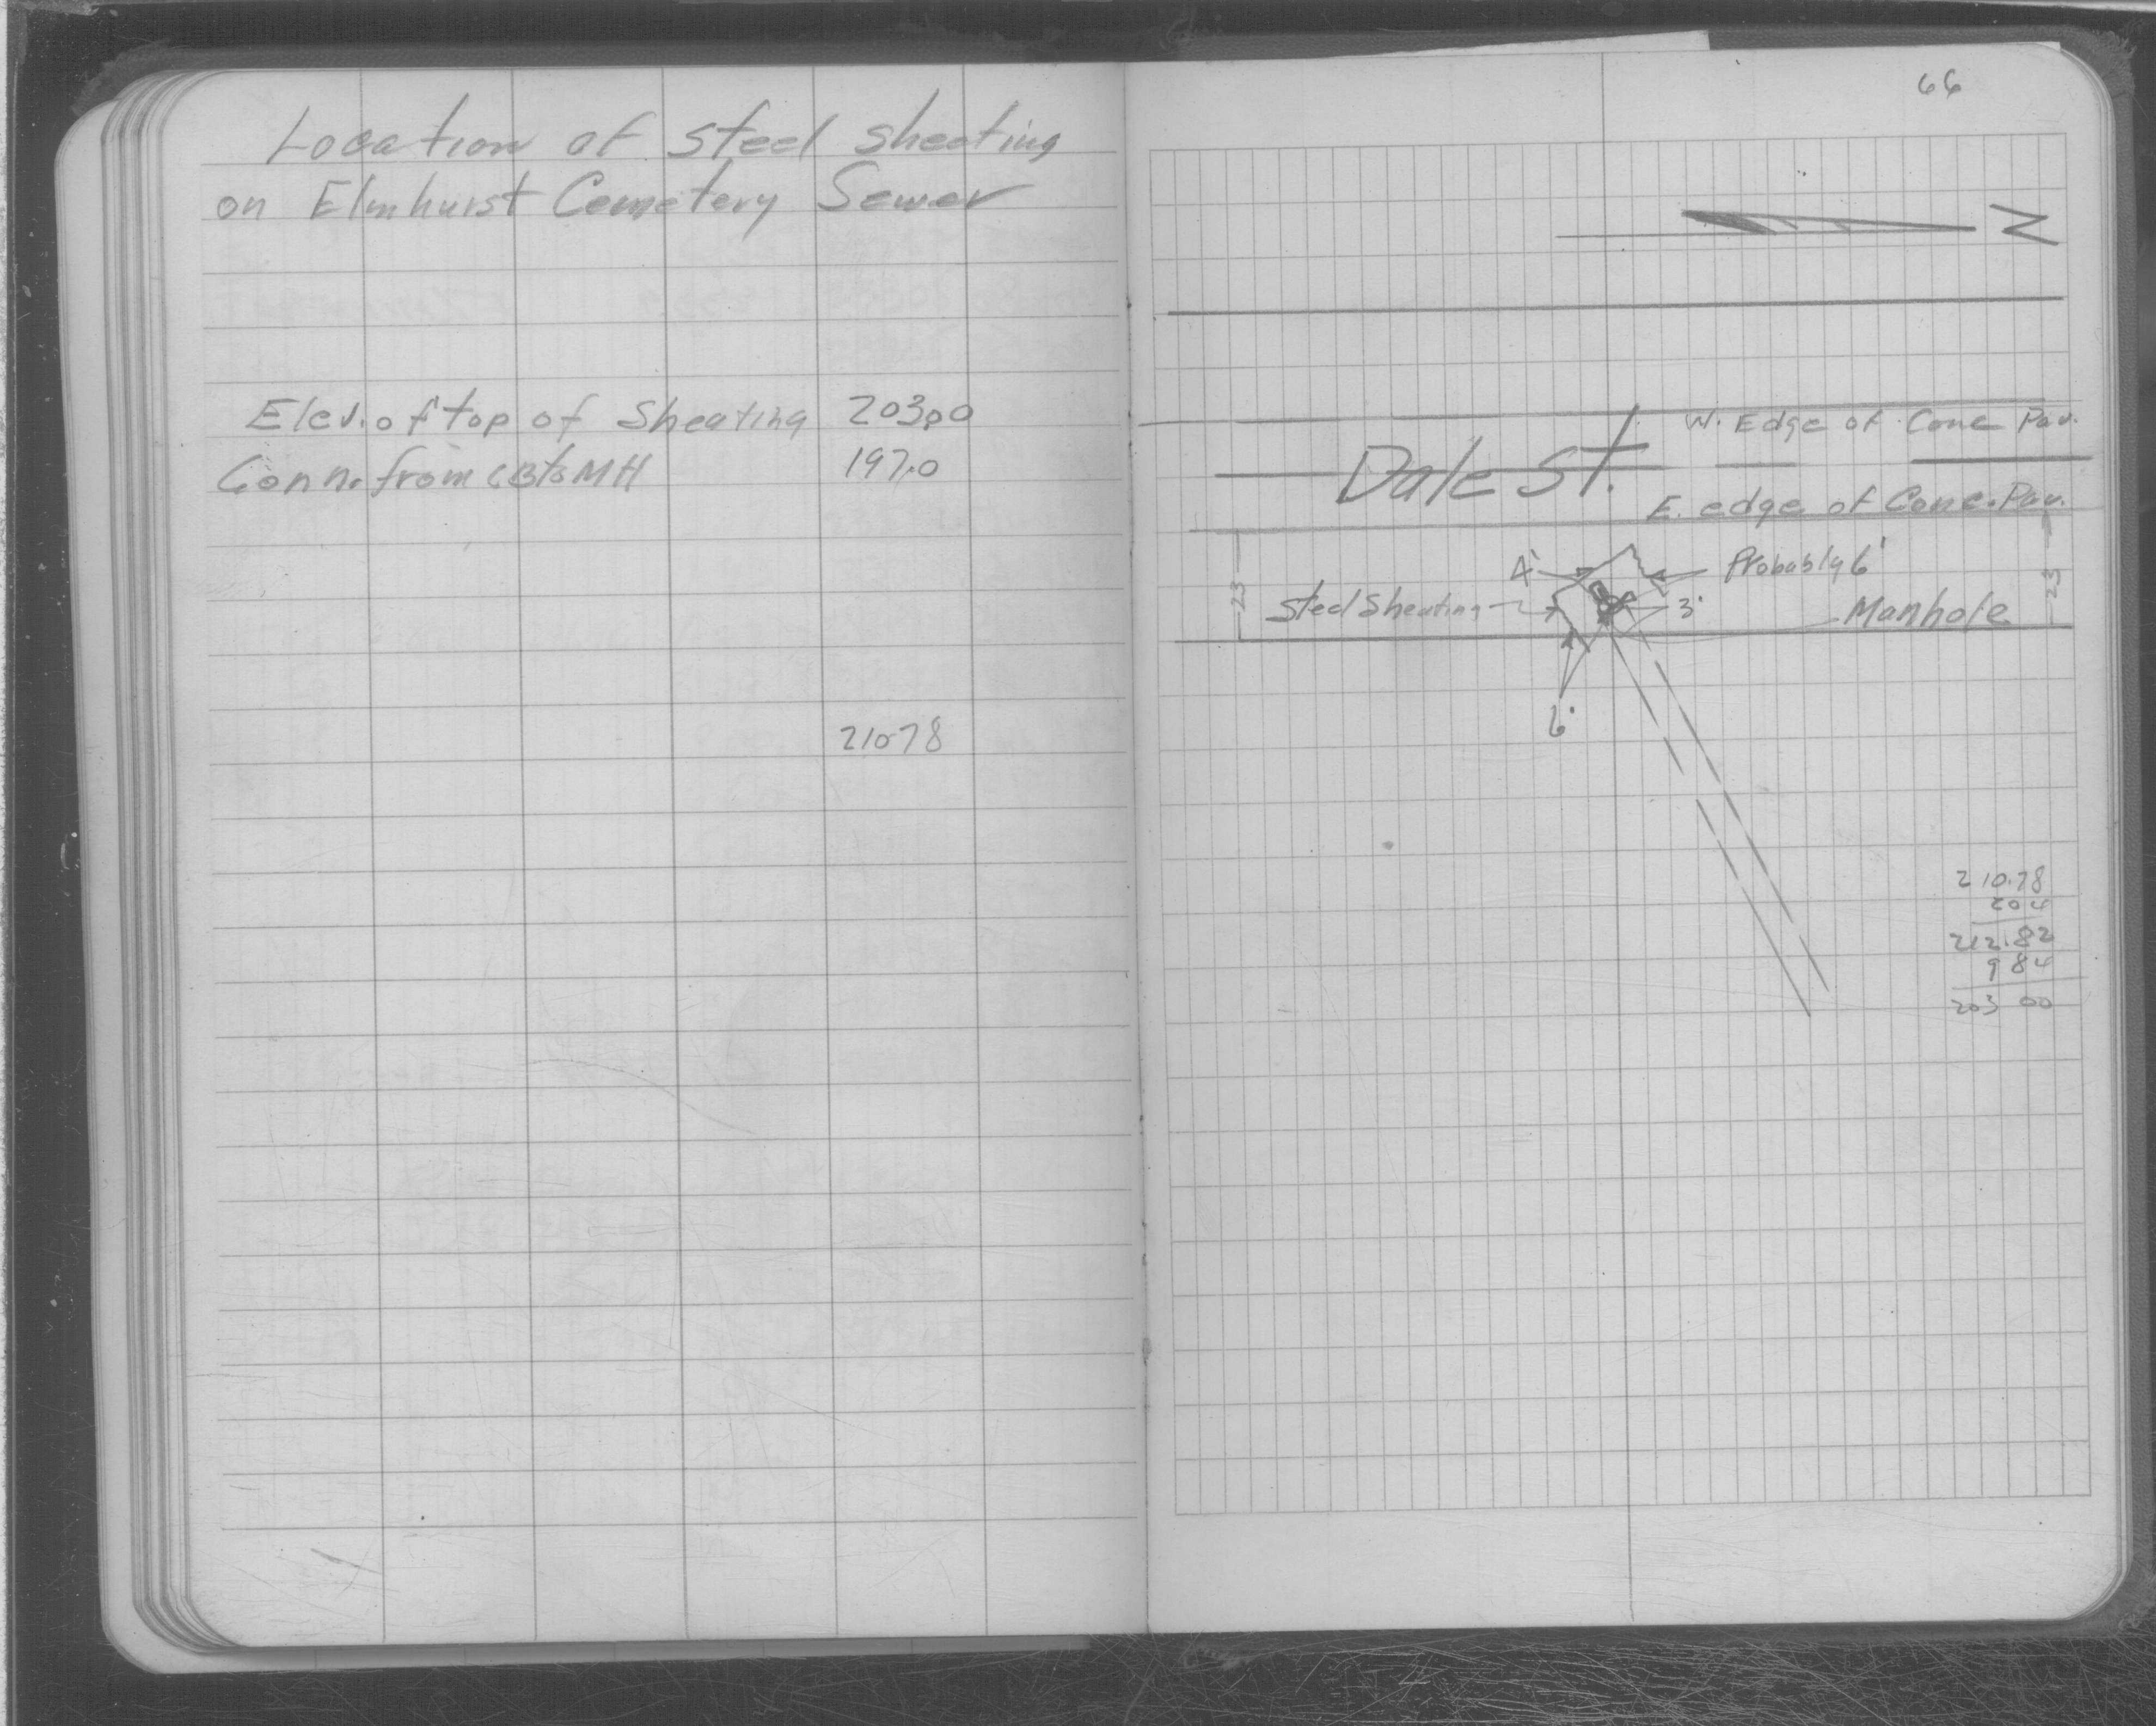 Location of steel sheeting
on Elmhurst Cemetery Sewer
Elev. of top of Sheating 203.0
Conn. from CB to MH 197.0
210.78
66
N
W. Edge of Conc Pav.
Dale St.
E. edge of Conc. Pav.
4'
Probably 6'
23
Steel Sheating
3'
Manhole
23
6'
210.78
204
212.82
984
203 00